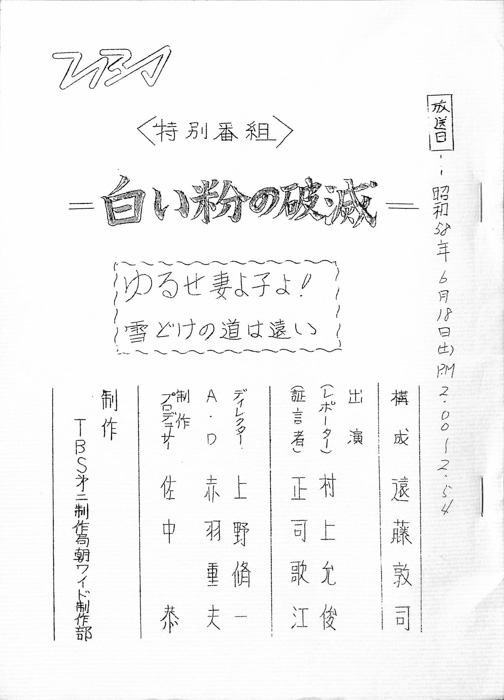 TBS
〈特別番組〉
＝白い粉の破滅＝
ゆるせ妻よ子よ！
雪どけの道は遠い
放送日‥昭和58年6月18日(土)PM2:00〜2:54
構成　遠藤敦司
出演
(レポーター)　村上允俊
(証言者)　正司歌江
ディレクター　上野脩一
A・D　赤羽重夫
制作プロデュサー　佐中　恭
制作
TBS第二制作局朝ワイド制作部